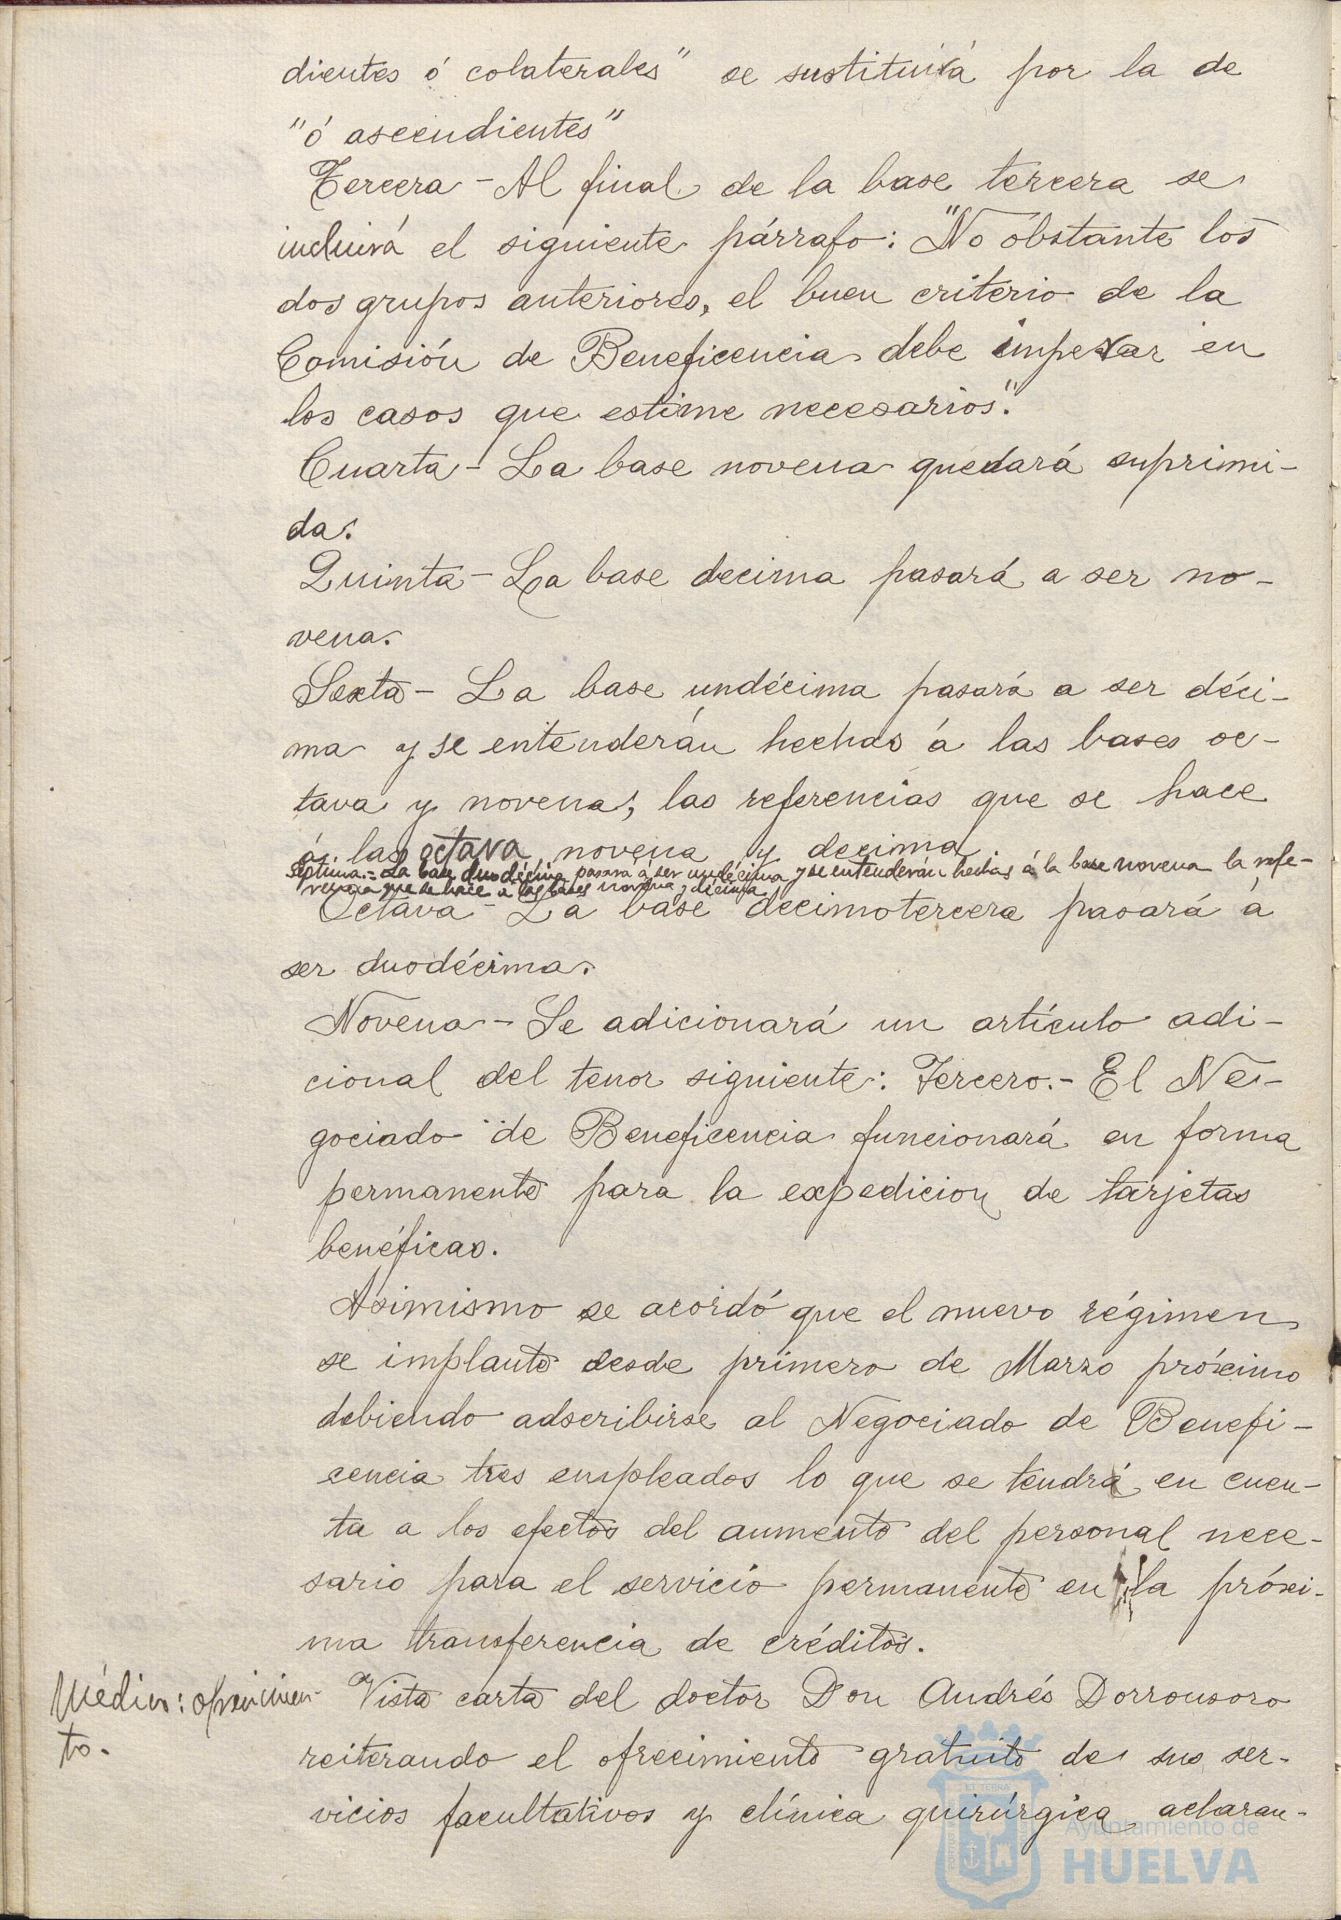 dientes ó colaterales" se sustituirá por la de
"ó ascendientes"
Tercera - Al final de la base tercera se
incluirá el siguiente párrafo: "No obstante los
dos grupos anteriores, el buen criterio de la
Comisión de Beneficencia debe imperar en
los casos que estime necesarios".
Cuarta - La base novena quedará suprimi-
da.
Quinta - La base decima pasará a ser no-
vena.
Sexta - La base undécima pasará a ser déci-
ma y se entenderán hechas á las bases oc-
tava y novena, las referencias que se hace
á las octava novena y decima
Séptima.- La base duodécima pasará á ser undécima y se entenderán hechas á la base novena la refe-
rencia que se hace á las bases novena y décima
Octava - La base decimotercera pasará á
ser duodécima.
Novena - Se adicionará un artículo adi-
cional del tenor siguiente: Tercero.- El Ne-
gociado de Beneficencia funcionará en forma
permanente para la expedicion de tarjetas
benéficas.
Asimismo se acordó que el nuevo régimen
se implante desde primero de Marzo próximo
debiendo adscribirse al Negociado de Benefi-
cencia tres empleados lo que se tendrá en cuen-
ta a los efectos del aumento del personal nece-
sario para el servicio permanente en la próxi-
ma transferencia de créditos.
Médico: ofrecimien-
to.
Vista carta del doctor Don Andrés Dorronsoro
reiterando el ofrecimiento gratuito de sus ser-
vicios facultativos y clínica quirúrgica, aclaran-
Ayuntamiento de
HUELVA